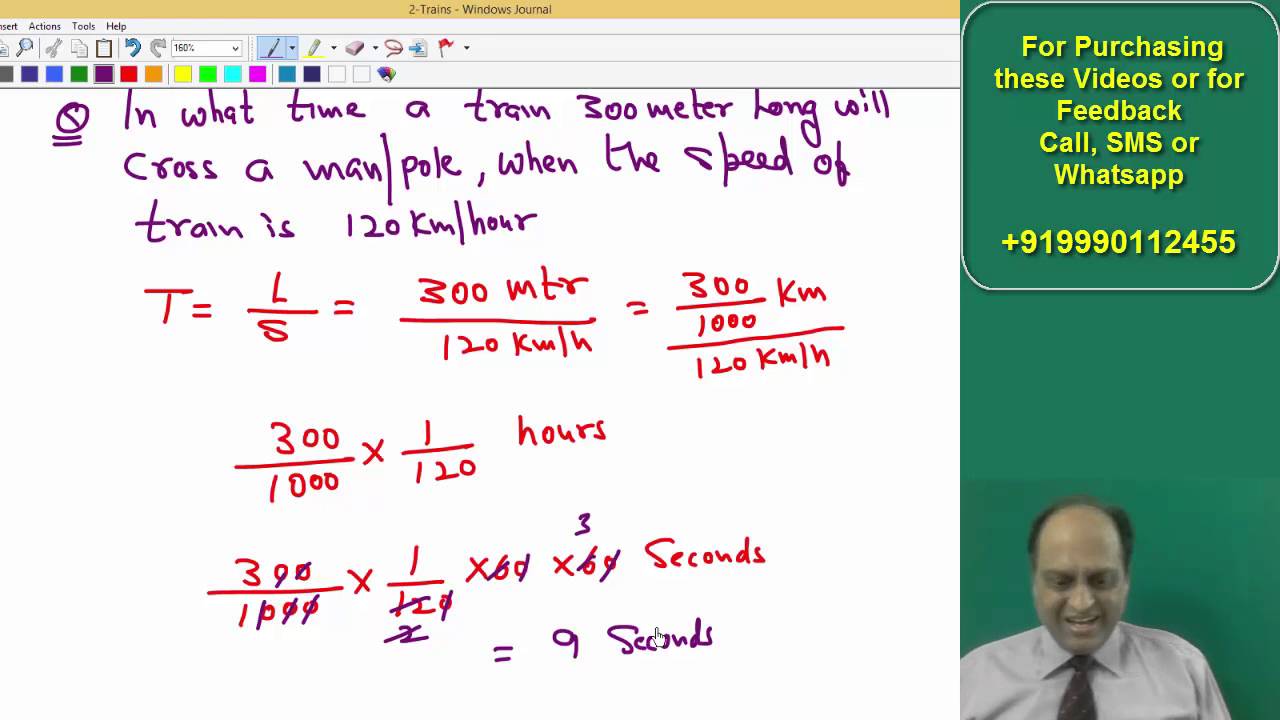 2-Trains - Windows Journal
nsert Actions Tools Help
160%
Q In what time a train 300 meter Long will
Cross a man/pole, when the speed of
train is 120 Km/hour
T = L/S = 300 mtr / 120 Km/h = 300/1000 Km / 120 Km/h
300/1000 × 1/120 hours
3
300/1000 × 1/120 × 60 × 60 Seconds
2
= 9 Seconds
For Purchasing
these Videos or for
Feedback
Call, SMS or
Whatsapp
+919990112455